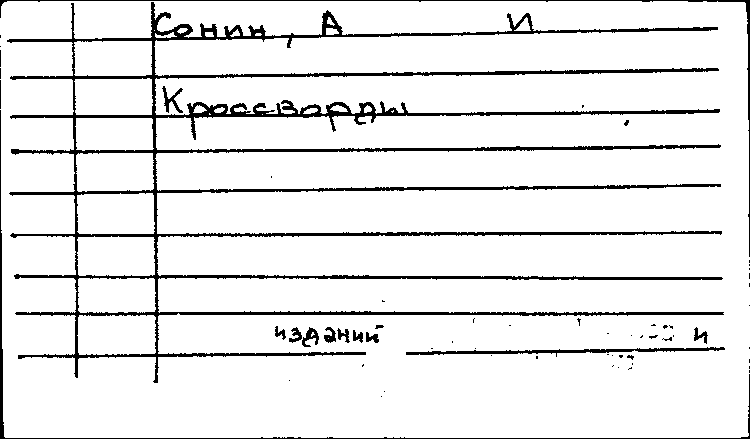 Сонин, А И
Кроссворды
изданий и